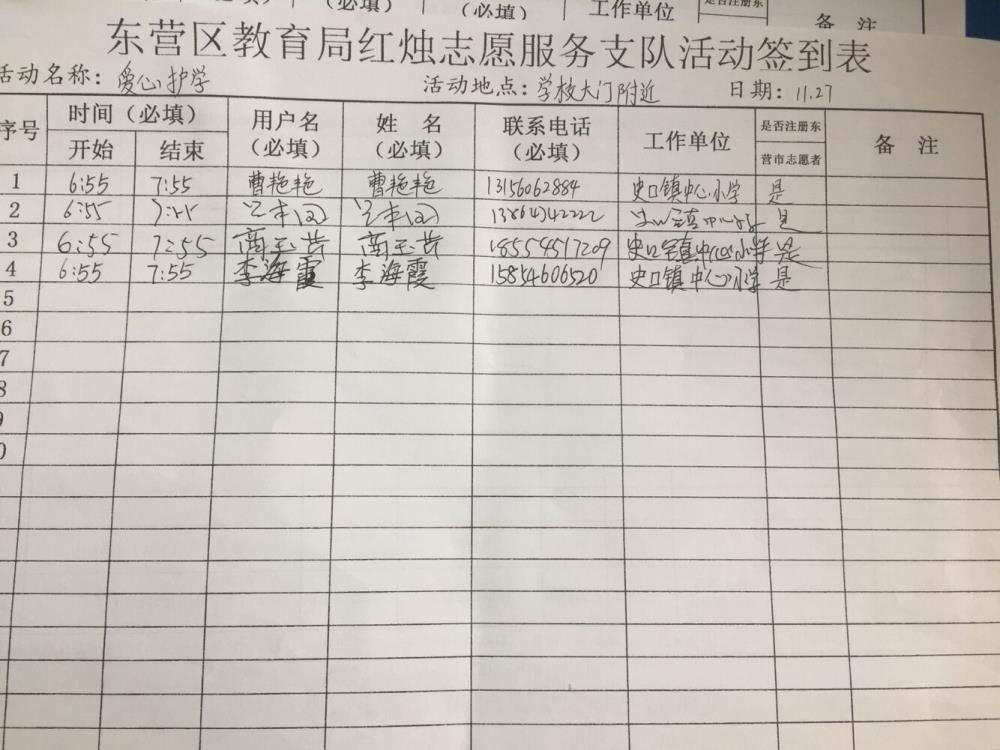 (必填)
(必填)
工作单位
备 注
东营区教育局红烛志愿服务支队活动签到表
活动名称：爱心护学 活动地点：学校大门附近 日期：11.27
序号 时间（必填） 用户名（必填） 姓 名（必填） 联系电话（必填） 工作单位 是否注册东营市志愿者 备 注
开始 结束
1 6:55 7:55 曹艳艳 曹艳艳 13156062884 史口镇中心小学 是
2 6:55 7:55 是
3 6:55 7:55 18554517209 史口镇中心小学 是
4 6:55 7:55 李海霞 李海霞 15854606520 史口镇中心小学 是
5
6
7
8
9
0